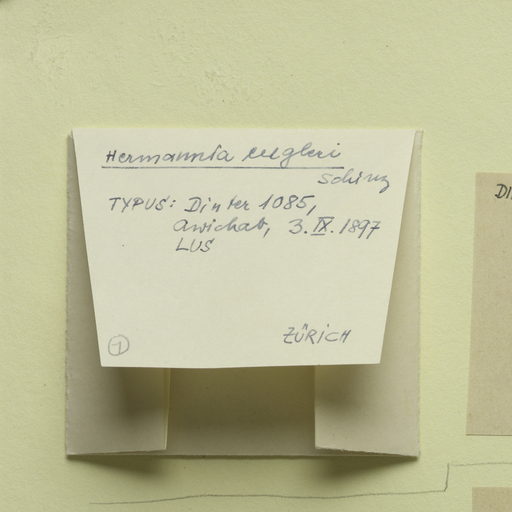 Hermannia engleri
Schinz
TYPUS: Dinter 1085,
Awichab, 3. IX. 1897
LUS
ZÜRICH
1
DI